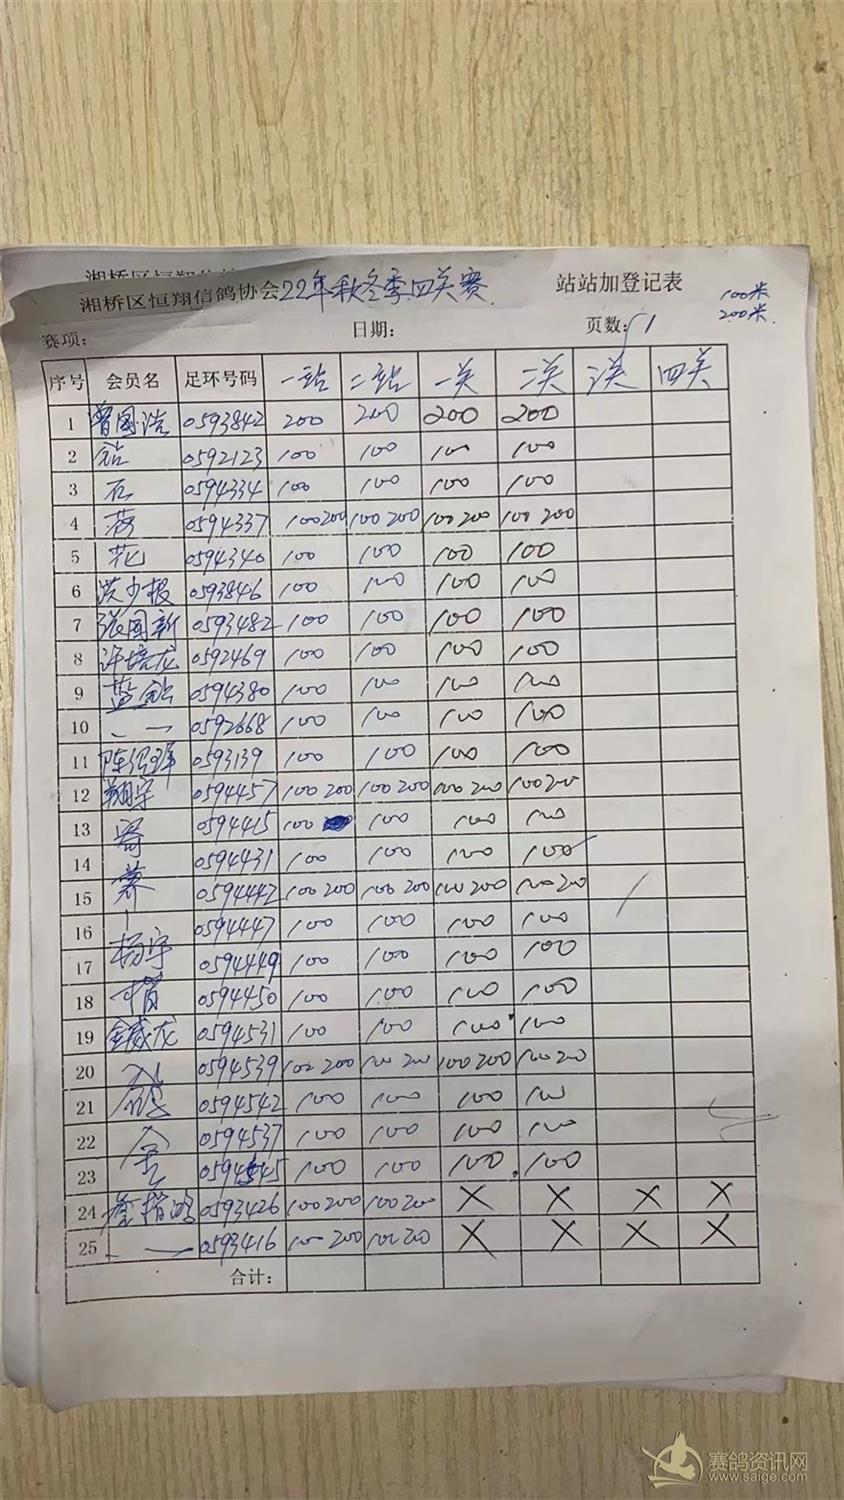 湘桥区恒翔信鸽协会22年秋冬季四关赛 站站加登记表
100米
200米
赛项: 日期: 页数: 1
序号 会员名 足环号码 一站 二站 一关 二关 三关 四关
1 曾国浩 0593842 200 200 200 200
2 0592123 100 100 100 100
3 0594334 100 100 100 100
4 0594337 100 200 100 200 100 200 100 200
5 花 0594340 100 100 100 100
6 洪少根 0593846 100 100 100 100
7 张国新 0593482 100 100 100 100
8 许培龙 0592469 100 100 100 100
9 0594380 100 100 100 100
10 0592668 100 100 100 100
11 0593139 100 100 100 100
12 翔宇 0594457 100 200 100 200 100 200 100 200
13 0594415 100 100 100 100
14 0594431 100 100 100 100
15 0594442 100 200 100 200 100 200 100 200
16 0594447 100 100 100 100
17 杨宇 0594449 100 100 100 100
18 0594450 100 100 100 100
19 0594531 100 100 100 100
20 0594539 100 200 100 200 100 200 100 200
21 0594542 100 100 100 100
22 0594537 100 100 100 100
23 0594545 100 100 100 100
24 0593426 100 200 100 200 X X X X
25 0593416 100 200 100 200 X X X X
合计:
赛鸽资讯网
www.saige.com